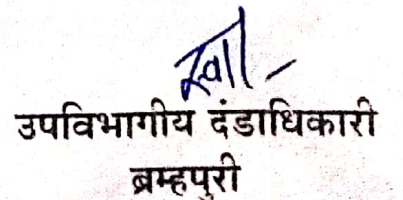 स्वा/-
उपविभागीय दंडाधिकारी
ब्रम्हपुरी